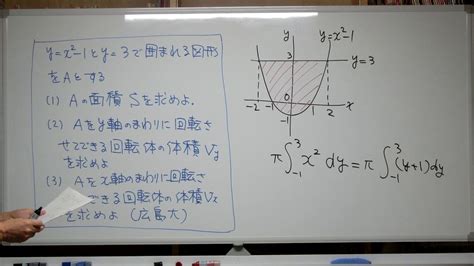 y=x²-1とy=3で囲まれる図形
をAとする
(1) Aの面積Sを求めよ.
(2) Aをy軸のまわりに回転さ
せてできる回転体の体積Vy
を求めよ
(3) Aをx軸のまわりに回転さ
できる回転体の体積Vx
を求めよ (広島大)
y
y=x²-1
3
y=3
-2
-1
0
1
2
x
-1
π∫₋₁³ x² dy = π∫₋₁³ (y+1)dy